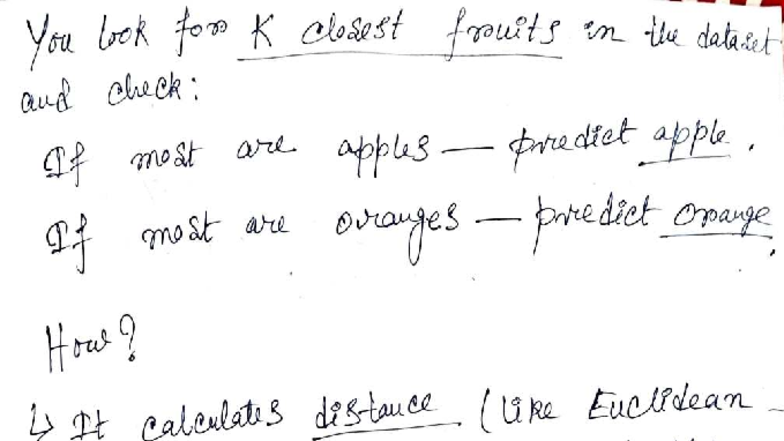 You look for K closest fruits in the dataset
and check:
If most are apples — predict apple.
If most are oranges — predict orange.
How?
↳ It calculates distance (like Euclidean